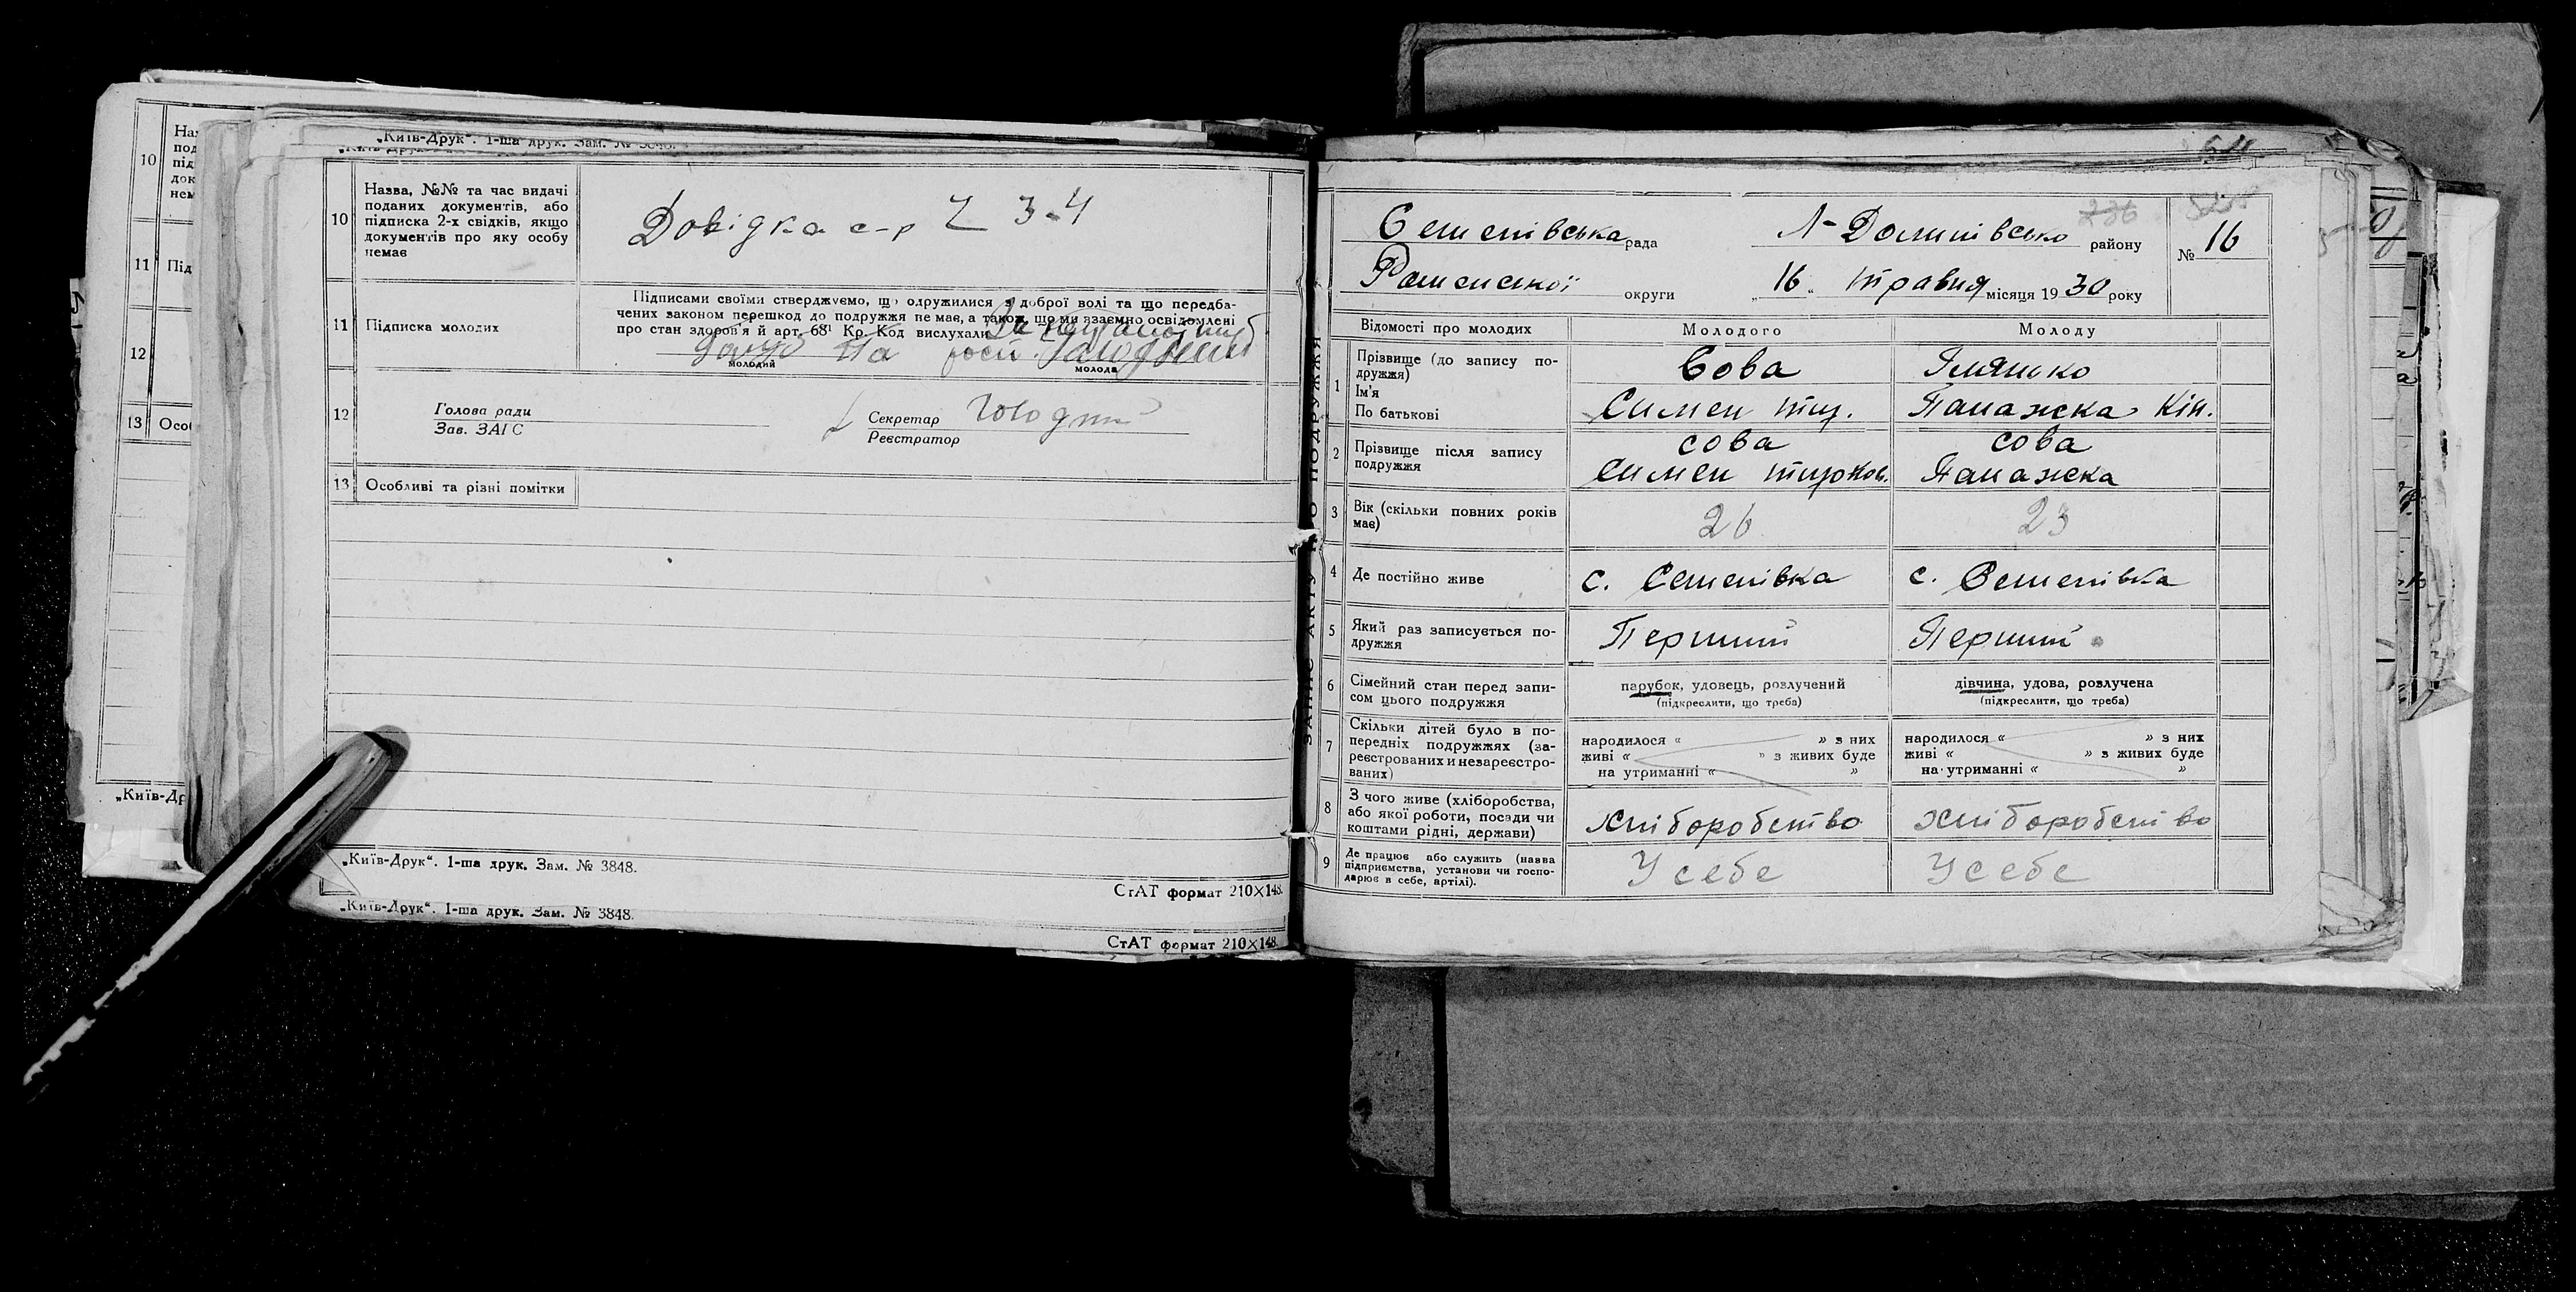 „Київ-Друк“. 1-ша друк. Зам. № 3848.
10
11 Під
12
13 Особ
„Київ-Др
10 Назва, №№ та час видачі
поданих документів, або
підписка 2-х свідків, якщо
документів про яку особу
немає
Довідка с-р 2 3-4
11 Підписка молодих
Підписами своїми стверджуємо, що одружилися з доброї волі та що передба-
чених законом перешкод до подружжя немає, а також, що ми взаємно освідомлені
про стан здоров'я й арт. 68¹ Кр. Код вислухали
молодий
молода
12 Голова ради
Зав. ЗАГС
Секретар
Реєстратор
13 Особливі та різні помітки
„Київ-Друк“. 1-ша друк. Зам. № 3848.
СтАТ формат 210×148.
„Київ-Друк“. 1-ша друк. Зам. № 3848.
СтАТ формат 210×148.
ЗАПИС АКТУ ПРО ПОДРУЖЖЯ
Семенівська рада Л-Долинівсько району № 16
Роменської округи „16“ травня місяця 1930 року
Відомості про молодих Молодого Молоду
1 Прізвище (до запису по-
дружжя)
Ім'я
По батькові
Сова
Симен
Кін.
2 Прізвище після запису
подружжя
сова сова
Симен
3 Вік (скільки повних років
має)
26 23
4 Де постійно живе с. Семенівка с. Семенівка
5 Який раз записується по-
дружжя
Перший Перший
6 Сімейний стан перед запи-
сом цього подружжя
парубок, удовець, розлучений
(підкреслити, що треба)
дівчина, удова, розлучена
(підкреслити, що треба)
7 Скільки дітей було в по-
передніх подружжях (за-
реєстрованих и незареєстро-
ваних)
народилося « » з них
живі « » з живих буде
на утриманні « »
народилося « » з них
живі « » з живих буде
на утриманні « »
8 З чого живе (хліборобства,
або якої роботи, посади чи
коштами рідні, держави)
хліборобство хліборобство
9 Де працює або служить (назва
підприємства, установи чи госпо-
дарює в себе, артілі).
У себе У себе